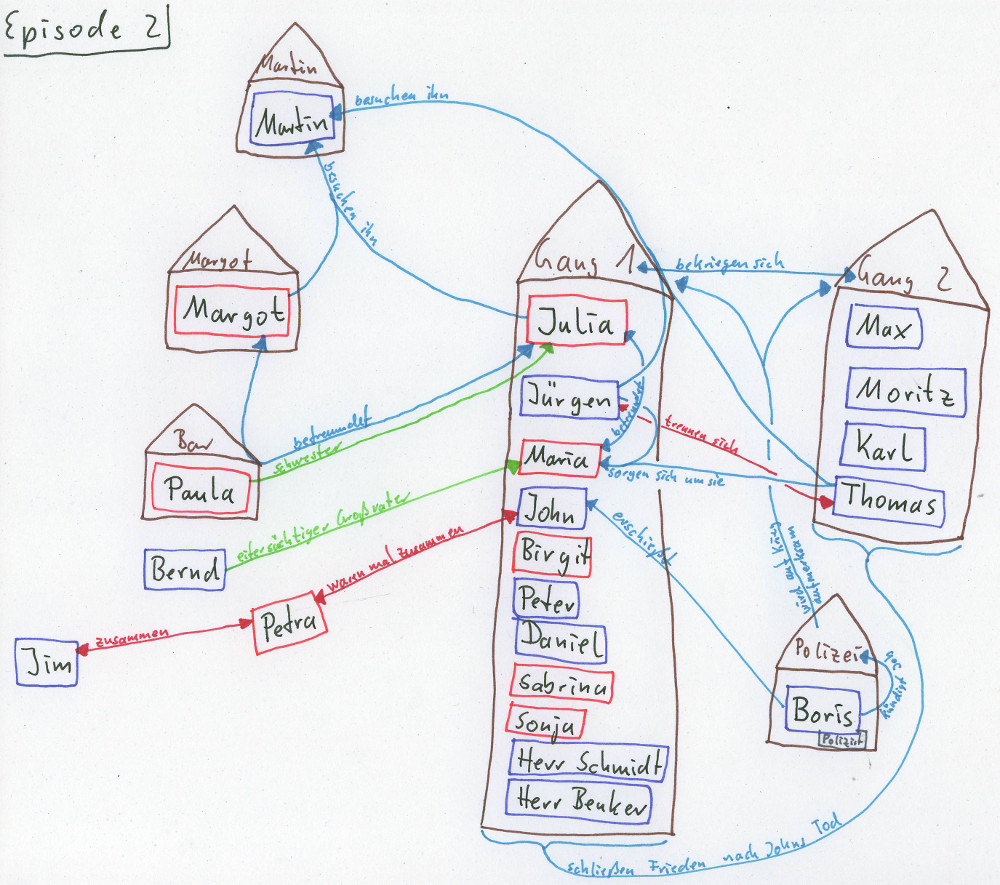 Episode 2
Martin
Martin
besuchen ihn
besuchen ihn
Margot
Margot
Gang 1
bekriegen sich
Gang 2
Julia
Max
Jürgen
befreundet
trennen sich
Moritz
Bar
Paula
befreundet
schwester
Maria
sorgen sich um sie
Karl
Thomas
eifersüchtiger Großvater
Bernd
John
erschießt
wird auf Krieg
aufmerksam
waren mal zusammen
Birgit
Petra
zusammen
Jim
Peter
Daniel
Polizei
kündigt
Job
Boris
Polizist
Sabrina
Sonja
Herr Schmidt
Herr Benker
schließen Frieden nach Johns Tod